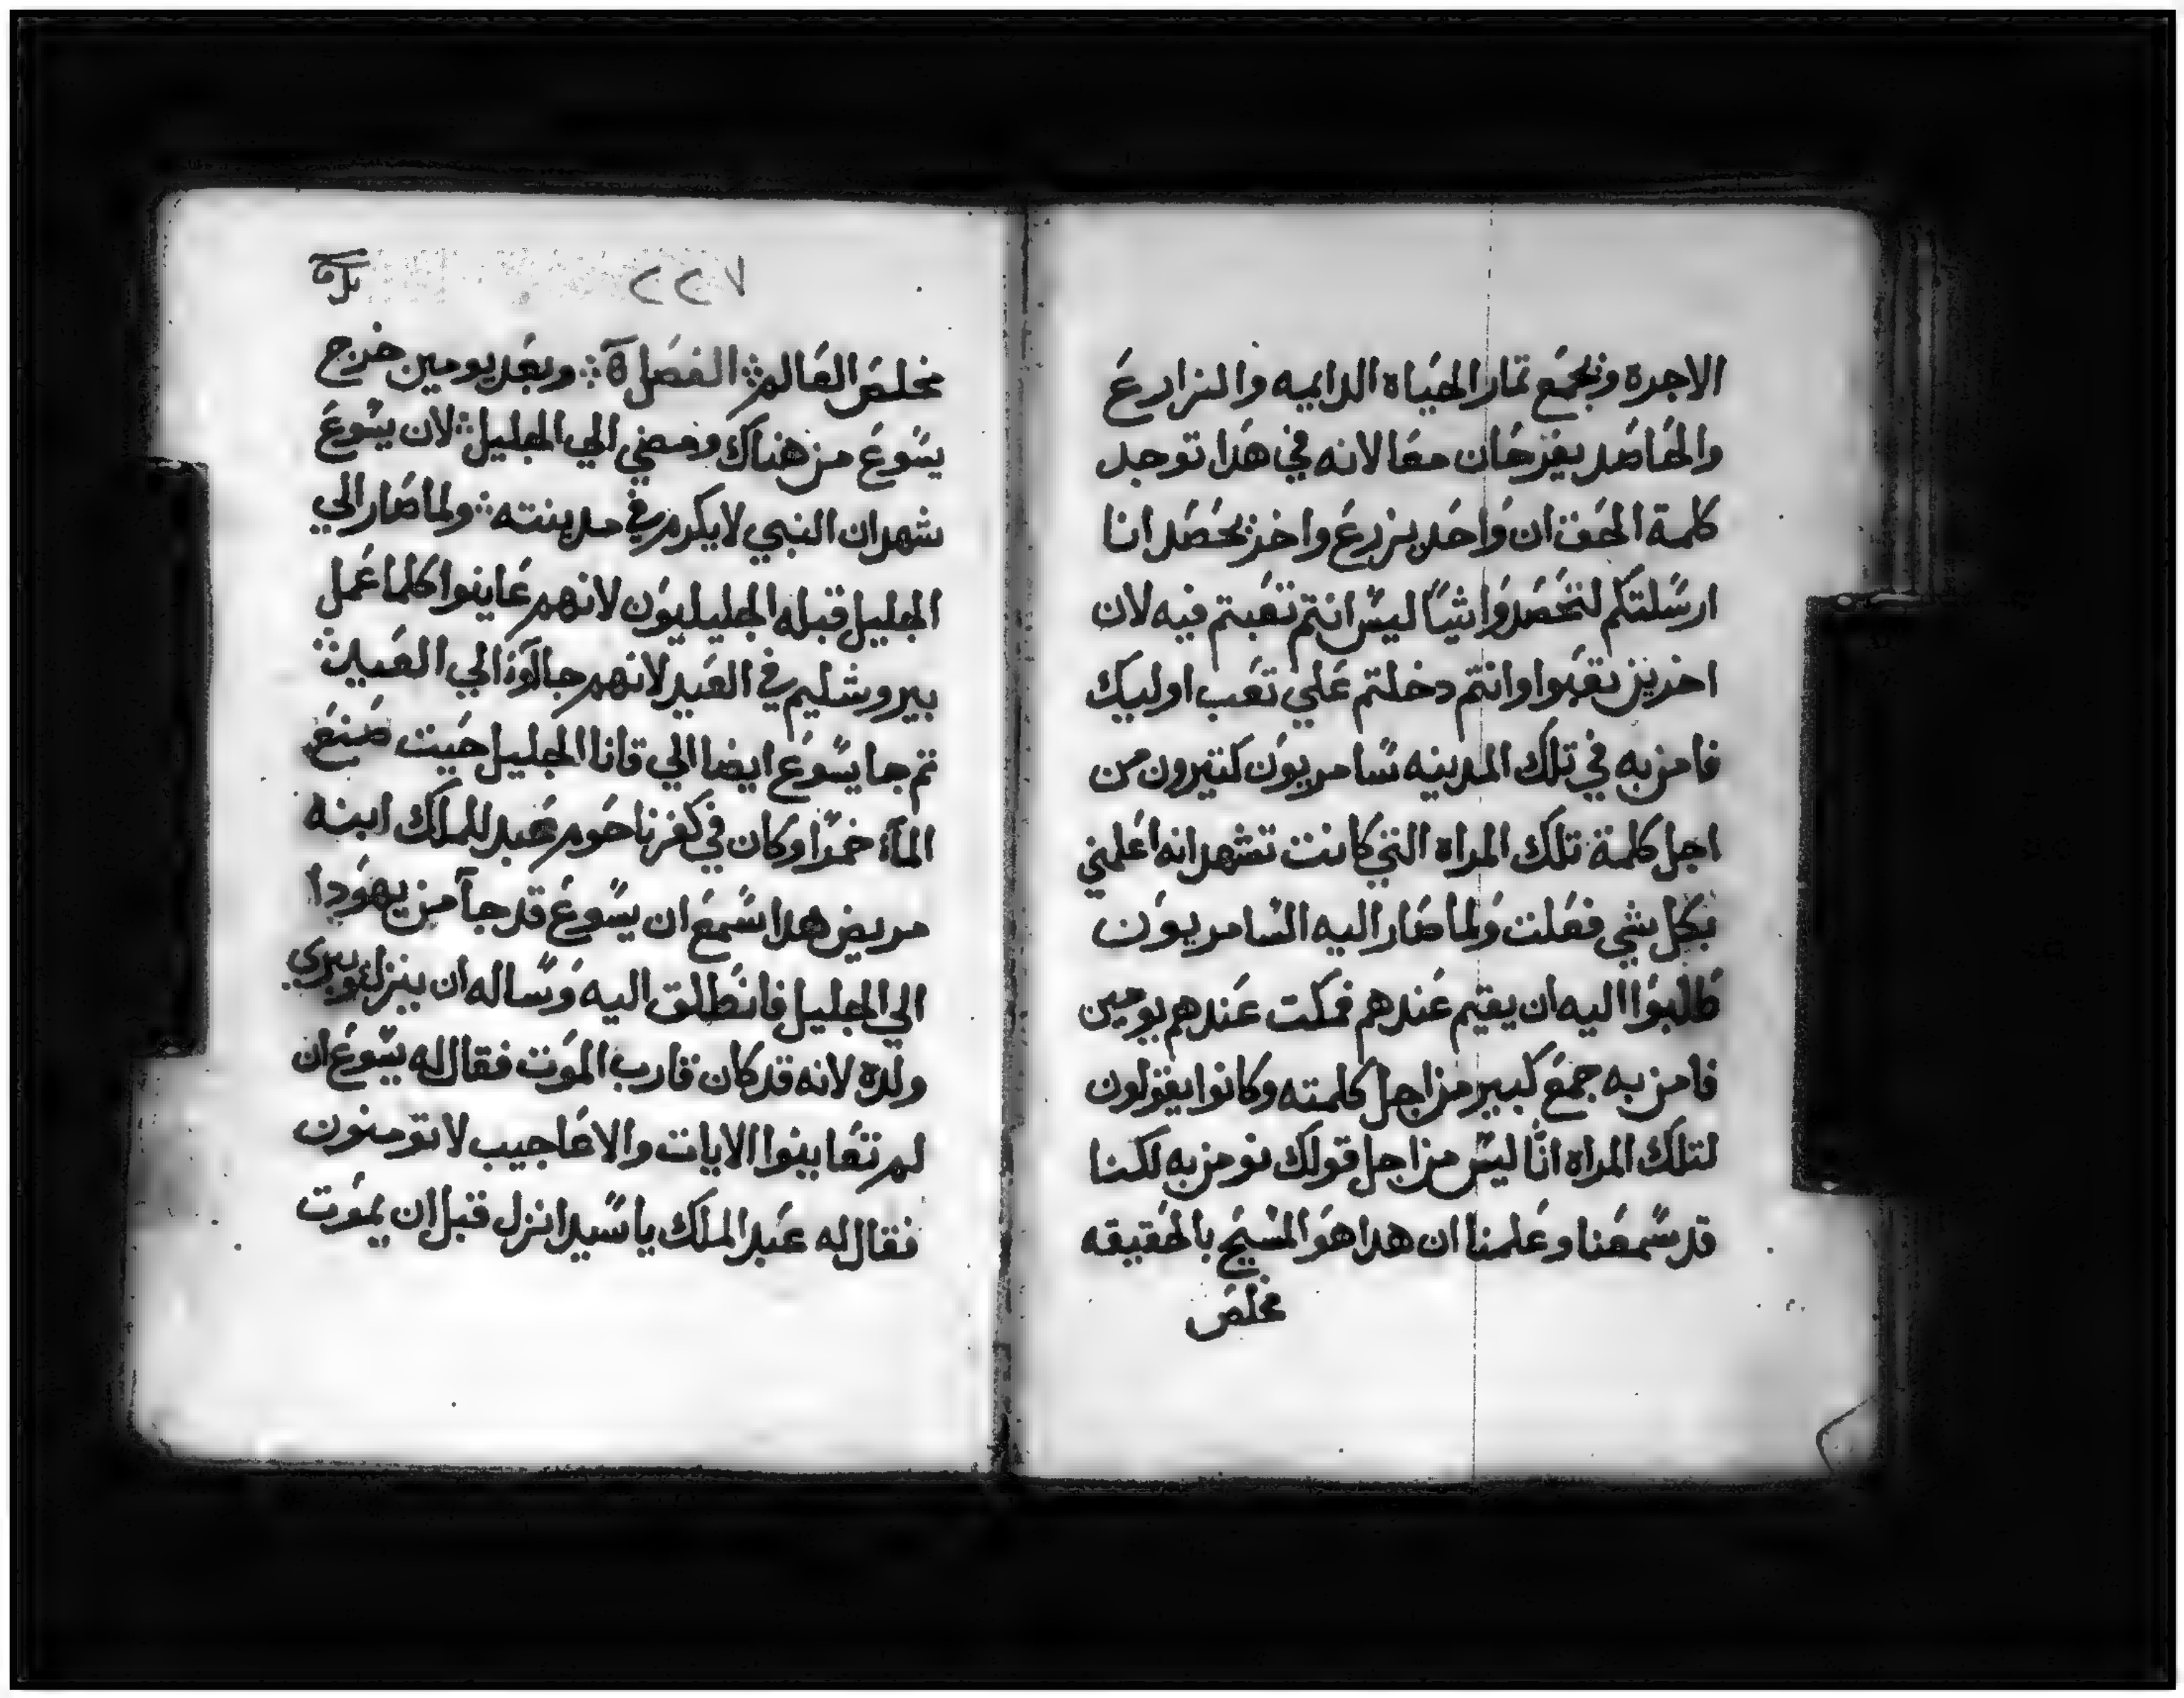 الاجرة ويجمع تمار الحياه الدايميه والزارع
والحاصد يفرحان معا لانه في هدا توجد
كلمة الحق ان واحد يزرع واخر يحصد انا
ارسلتكم لتحصدوا شيا ليس انتم تعبتم فيه لان
اخرين تعبوا وانتم دخلتم علي تعب اوليك
فامن به في تلك المدينه سامريون كتيرون من
اجل كلمة تلك المراه التي كانت تشهد انه اعلمني
بكل شي فعلت ولما صار اليه السامريون
طلبوا اليه ان يقيم عندهم فمكت عندهم يومين
فامن به جمع كبير من اجل كلمته وكانوا يقولون
لتلك المراه انا ليس من اجل قولك نومن به لكننا
قد سمعنا وعلمنا ان هدا هو المسيح بالحقيقه
مخلص
٢٢٧
مخلص العالم ܀ الفصل ܀ وبعد يومين خرج
يسوع من هناك ومضي الي الجليل ܀ لان يسوع
شهد ان النبي لا يكرم في مدينته ܀ ولما صار الي
الجليل قبله الجليليون لانهم عاينوا كلما عمل
بيروشليم في العيد لانهم جاآوا الي العيد ܀
تم جا يسوع ايضا الي قانا الجليل حيت صنع
المآء خمرا وكان في كفرناحوم عبد للملك ابنه
مريض هدا سمع ان يسوع قد جآ من يهودا
الي الجليل فانطلق اليه وساله ان ينزل ويبري
ولده لانه قد كان قارب الموت فقال له يسوع ان
لم تعاينوا الايات والاعاجيب لا تومنون
فقال له عبد الملك يا سيد انزل قبل ان يموت